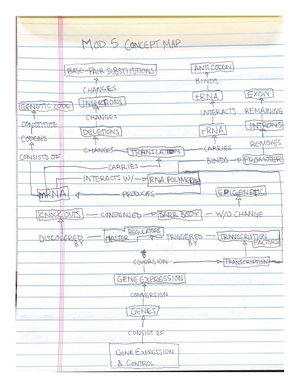 MOD 5 CONCEPT MAP
BASE-PAIR SUBSTITUTIONS ANTICODON
CHANGES BINDS
GENETIC CODE INSERTIONS tRNA EXON
CONSTITUTE CHANGES INTERACTS REMAINING
CODONS DELETIONS rRNA INTRONS
CONSISTS OF CHANGES TRANSLATION CARRIES REMOVES
CARRIES BINDS PROMOTER
INTERACTS W/ RNA POLYMERASE
mRNA PRODUCES EPIGENETIC
KNOCKOUTS CONDENSED BARR BODY W/O CHANGE
DISCOVERED BY MASTER REGULATORS TRIGGERED BY TRANSCRIPTION FACTORS
TRANSCRIPTION
GENE EXPRESSION
CONVERSION
GENES
CONSIST OF
GENE EXPRESSION
& CONTROL